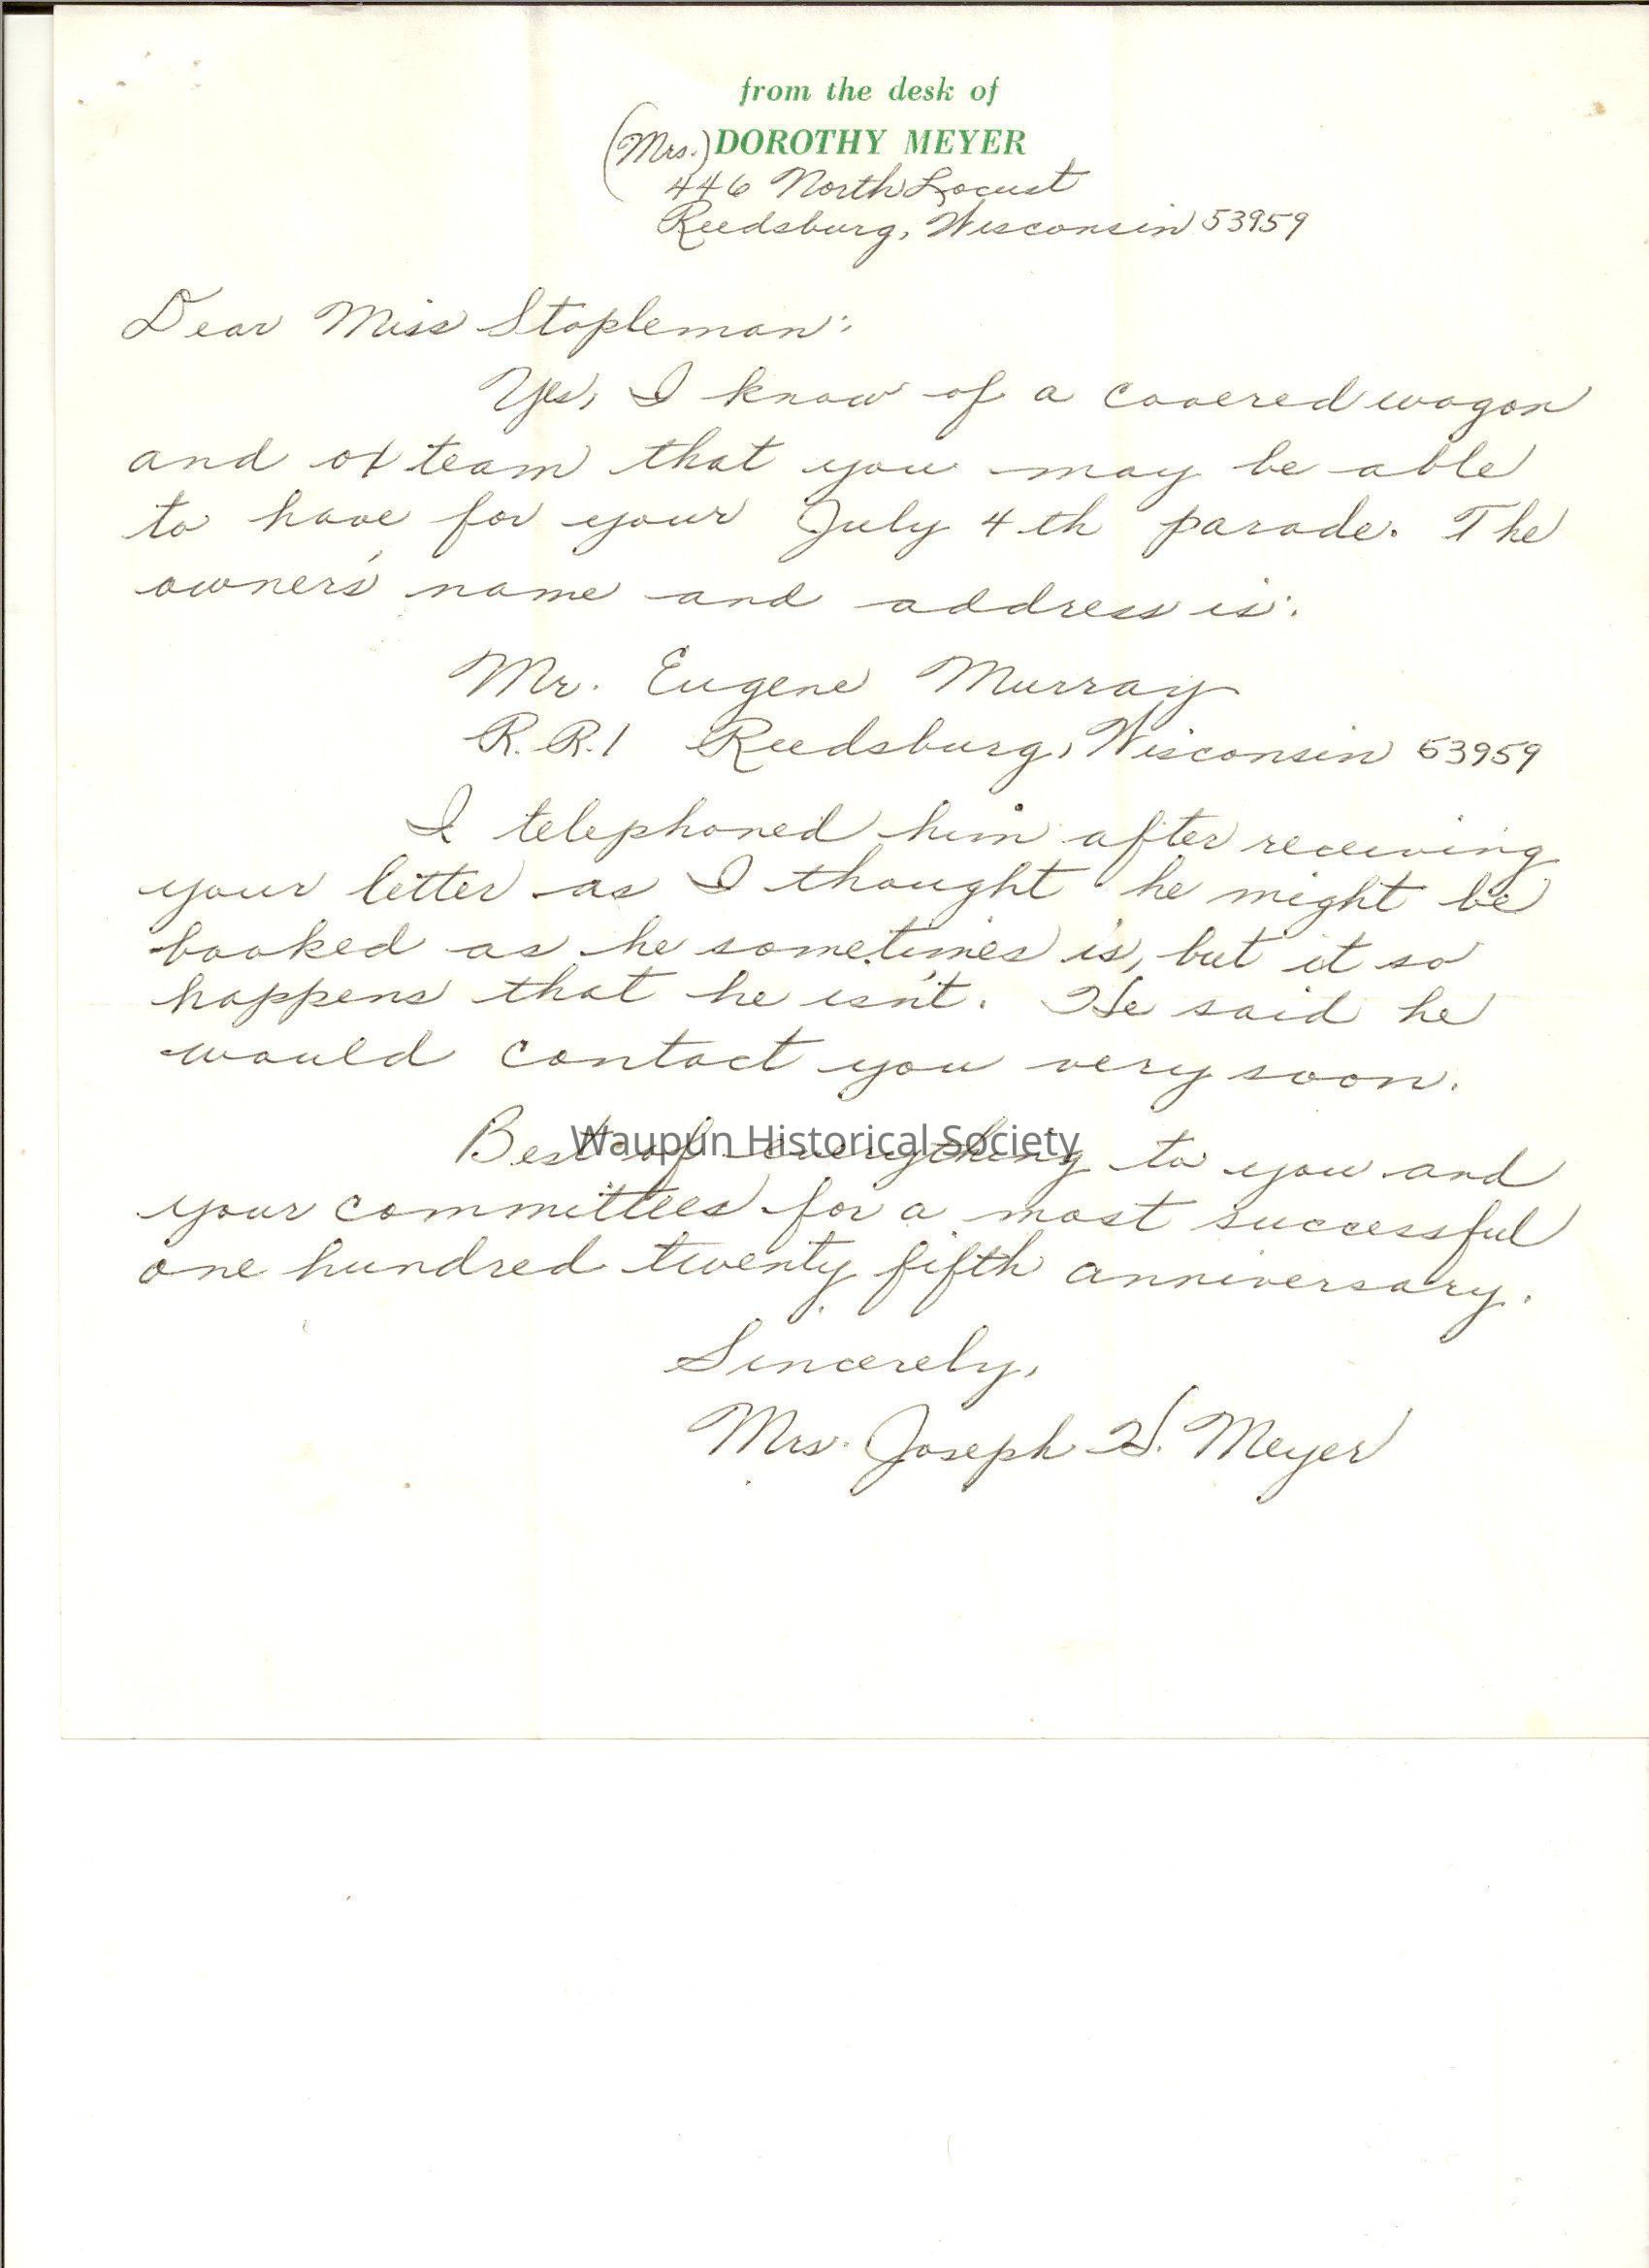 from the desk of
(Mrs.) DOROTHY MEYER
446 North Locust
Reedsburg, Wisconsin 53959
Dear Miss Stapleman:
Yes, I know of a covered wagon
and ox team that you may be able
to have for your July 4th parade. The
owner's name and address is:
Mr. Eugene Murray
R.R.1 Reedsburg, Wisconsin 53959
I telephoned him after receiving
your letter as I thought he might be
booked as he sometimes is, but it so
happens that he isn't. He said he
would contact you very soon.
Waupun Historical Society
Best of everything to you and
your committees for a most successful
one hundred twenty fifth anniversary.
Sincerely,
Mrs. Joseph H. Meyer